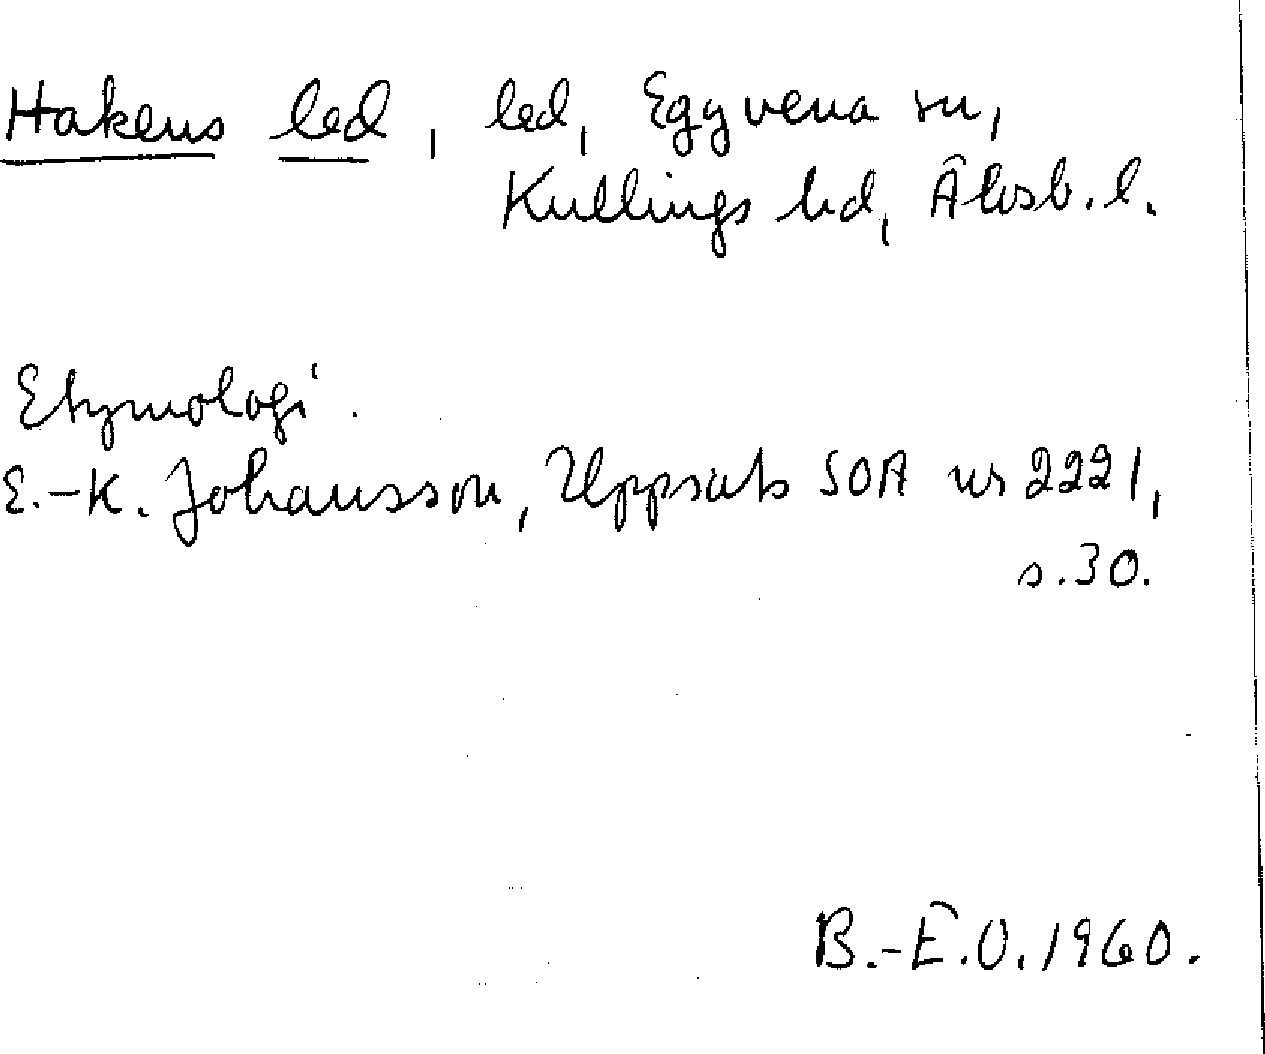 Hakens led, led, Eggvena sn,
Kullings hd, Älvsb. l.
Etymologi.
E.-K. Johansson, Uppsats SOA nr 2221,
s. 30.
B.-E.O. 1960.